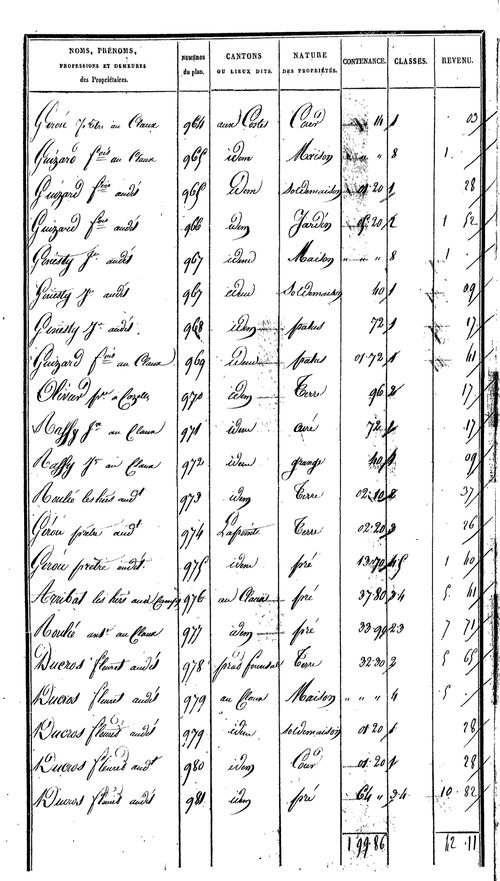 NOMS, PRÉNOMS, PROFESSIONS ET DEMEURES des Propriétaires. NUMÉROS du plan. CANTONS OU LIEUX DITS. NATURE DES PROPRIÉTÉS. CONTENANCE. CLASSES. REVENU.
Gérou au Claux 964 aux Cour 14 1 03
Guizard fçois au Claux 965 idem Maison " " 8 1 .
Guizard fçois andt 965 idem Soldemaison 01 20 1 28
Guizard fçois andt 966 idem Jardin 2 1 52
Ginesty Jn andt 967 idem Maison " " " 8 1 .
Ginesty Jn andt 967 idem Soldemaison 40 1 09
Ginesty Jn andt 968 idem patus 72 1 17
Guizard fçois au Claux 969 idem patus 01 72 1 41
Olivier pre a 970 idem Terre 96 2 17
Raffy Jn au Claux 971 idem 72 17
Raffy Jn au Claux 972 idem grange 40 1 09
Roulié les hers andt 973 idem Terre 02 10 2 37
Gérou prêtre andt 974 Terre 02 20 3 26
Gérou prêtre andt 975 idem pré 13 70 45 1 40
Arribat les hers aud 976 au Claux pré 37 80 34 5 41
Roulié ant. au Claux 977 idem pré 33 99 23 7 71
Ducros fleuret andt 978 Terre 32 30 2 5 65
Ducros fleuret andt 979 au Claux Maison " " " 4 5 .
Ducros fleuret andt 979 idem Soldemaison 01 20 1 28
Ducros fleuret andt 980 idem Cour 01 20 1 28
Ducros fleuret andt 981 idem pré 64 " 34 10 82
1 99 86 42 11